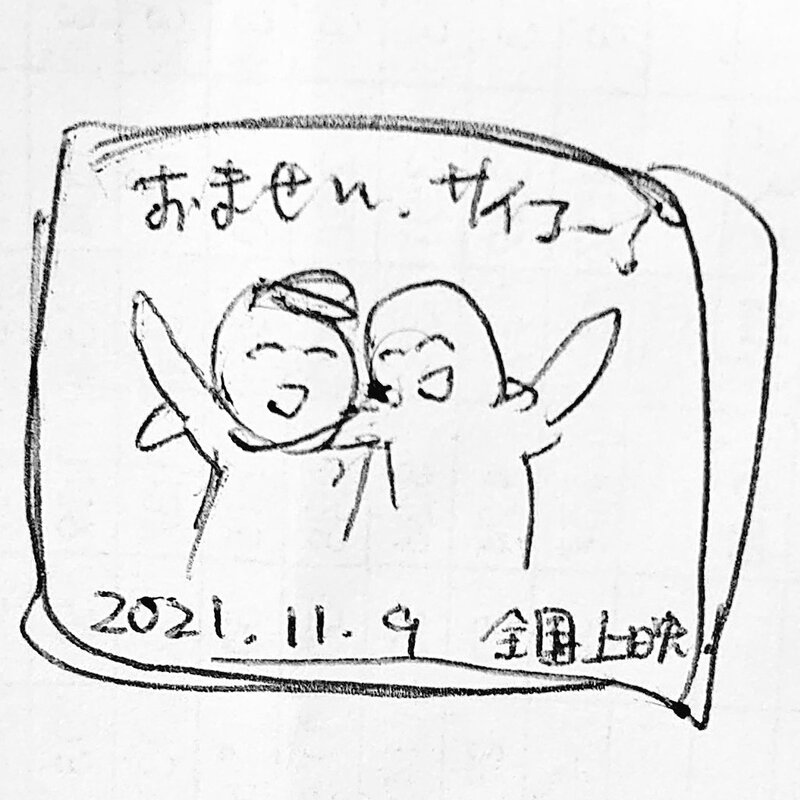 おませい、サイコー?
2021.11.9 全国上映!